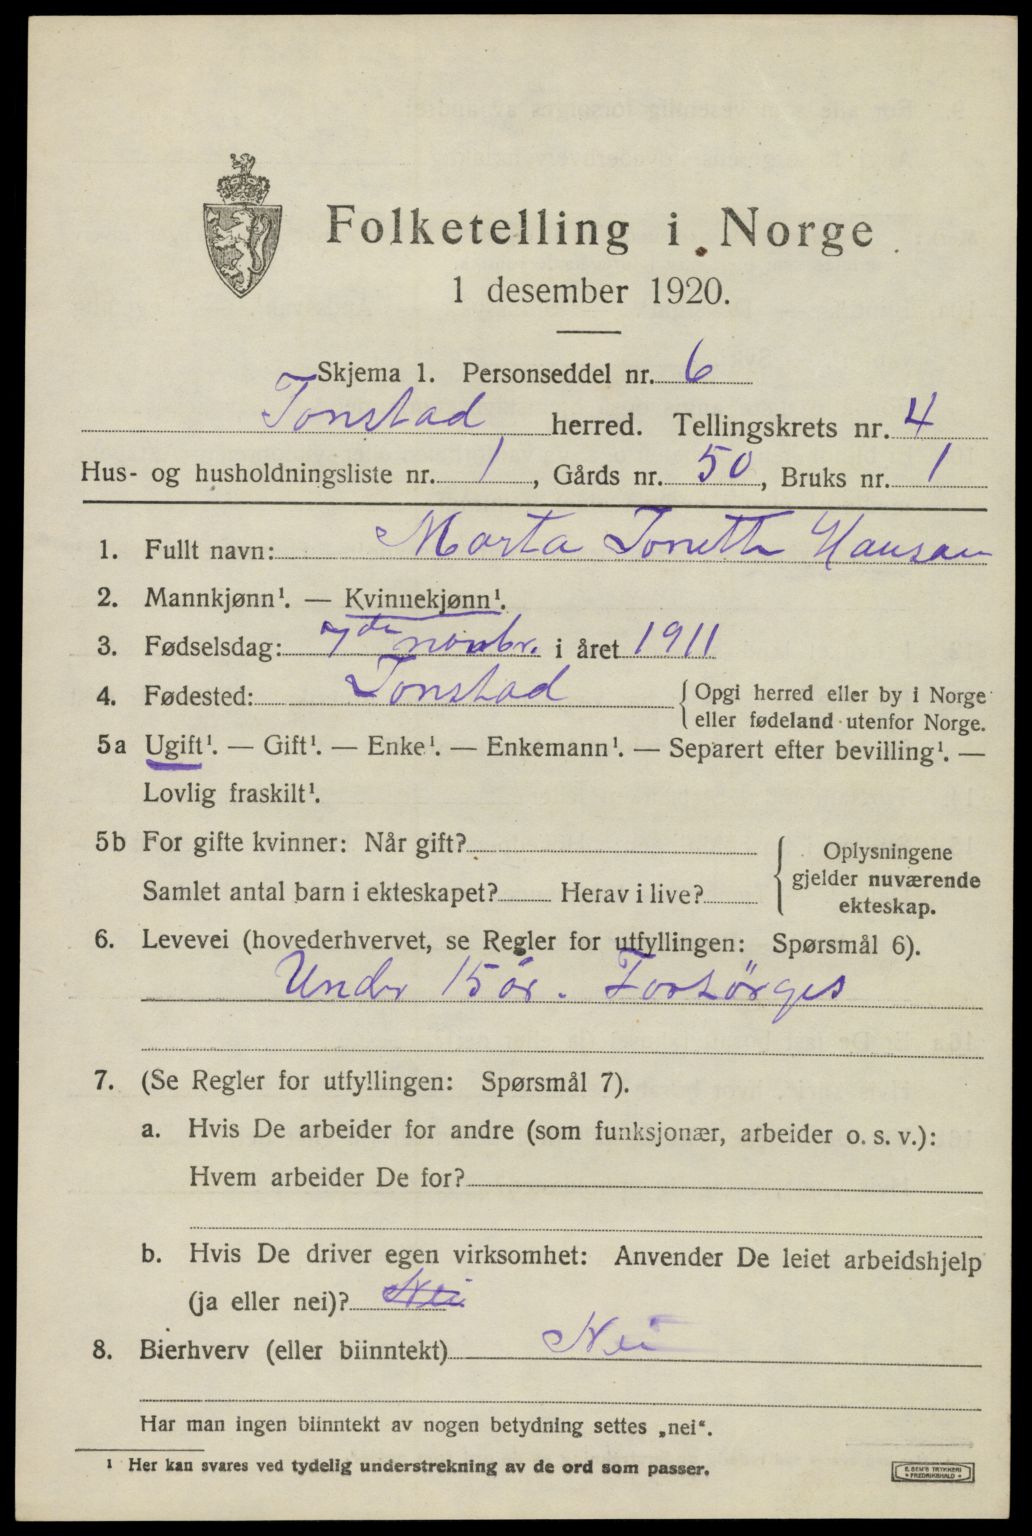 Folketelling i Norge
1 desember 1920.
Skjema 1. Personseddel nr. 6
Tonstad herred. Tellingskrets nr. 4
Hus- og husholdningsliste nr. 1, Gårds nr. 50, Bruks nr. 1
1. Fullt navn: Marta Tonette Hansen
2. Mannkjønn¹. — Kvinnekjønn¹.
3. Fødselsdag: 7de novbr. i året 1911
4. Fødested: Tonstad { Opgi herred eller by i Norge
eller fødeland utenfor Norge.
5a Ugift¹. — Gift¹. — Enke¹. — Enkemann¹. — Separert efter bevilling¹. —
Lovlig fraskilt¹.
5b For gifte kvinner: Når gift?
Samlet antal barn i ekteskapet? Herav i live?
Oplysningene
gjelder nuværende
ekteskap.
6. Levevei (hovederhvervet, se Regler for utfyllingen: Spørsmål 6).
Under 15 år. Forsørges
7. (Se Regler for utfyllingen: Spørsmål 7).
a. Hvis De arbeider for andre (som funksjonær, arbeider o. s. v.):
Hvem arbeider De for?
b. Hvis De driver egen virksomhet: Anvender De leiet arbeidshjelp
(ja eller nei)? Nei
8. Bierhverv (eller biinntekt) Nei
Har man ingen biinntekt av nogen betydning settes „nei“.
¹ Her kan svares ved tydelig understrekning av de ord som passer.
E. SEM'S TRYKKERI
FREDRIKSHALD